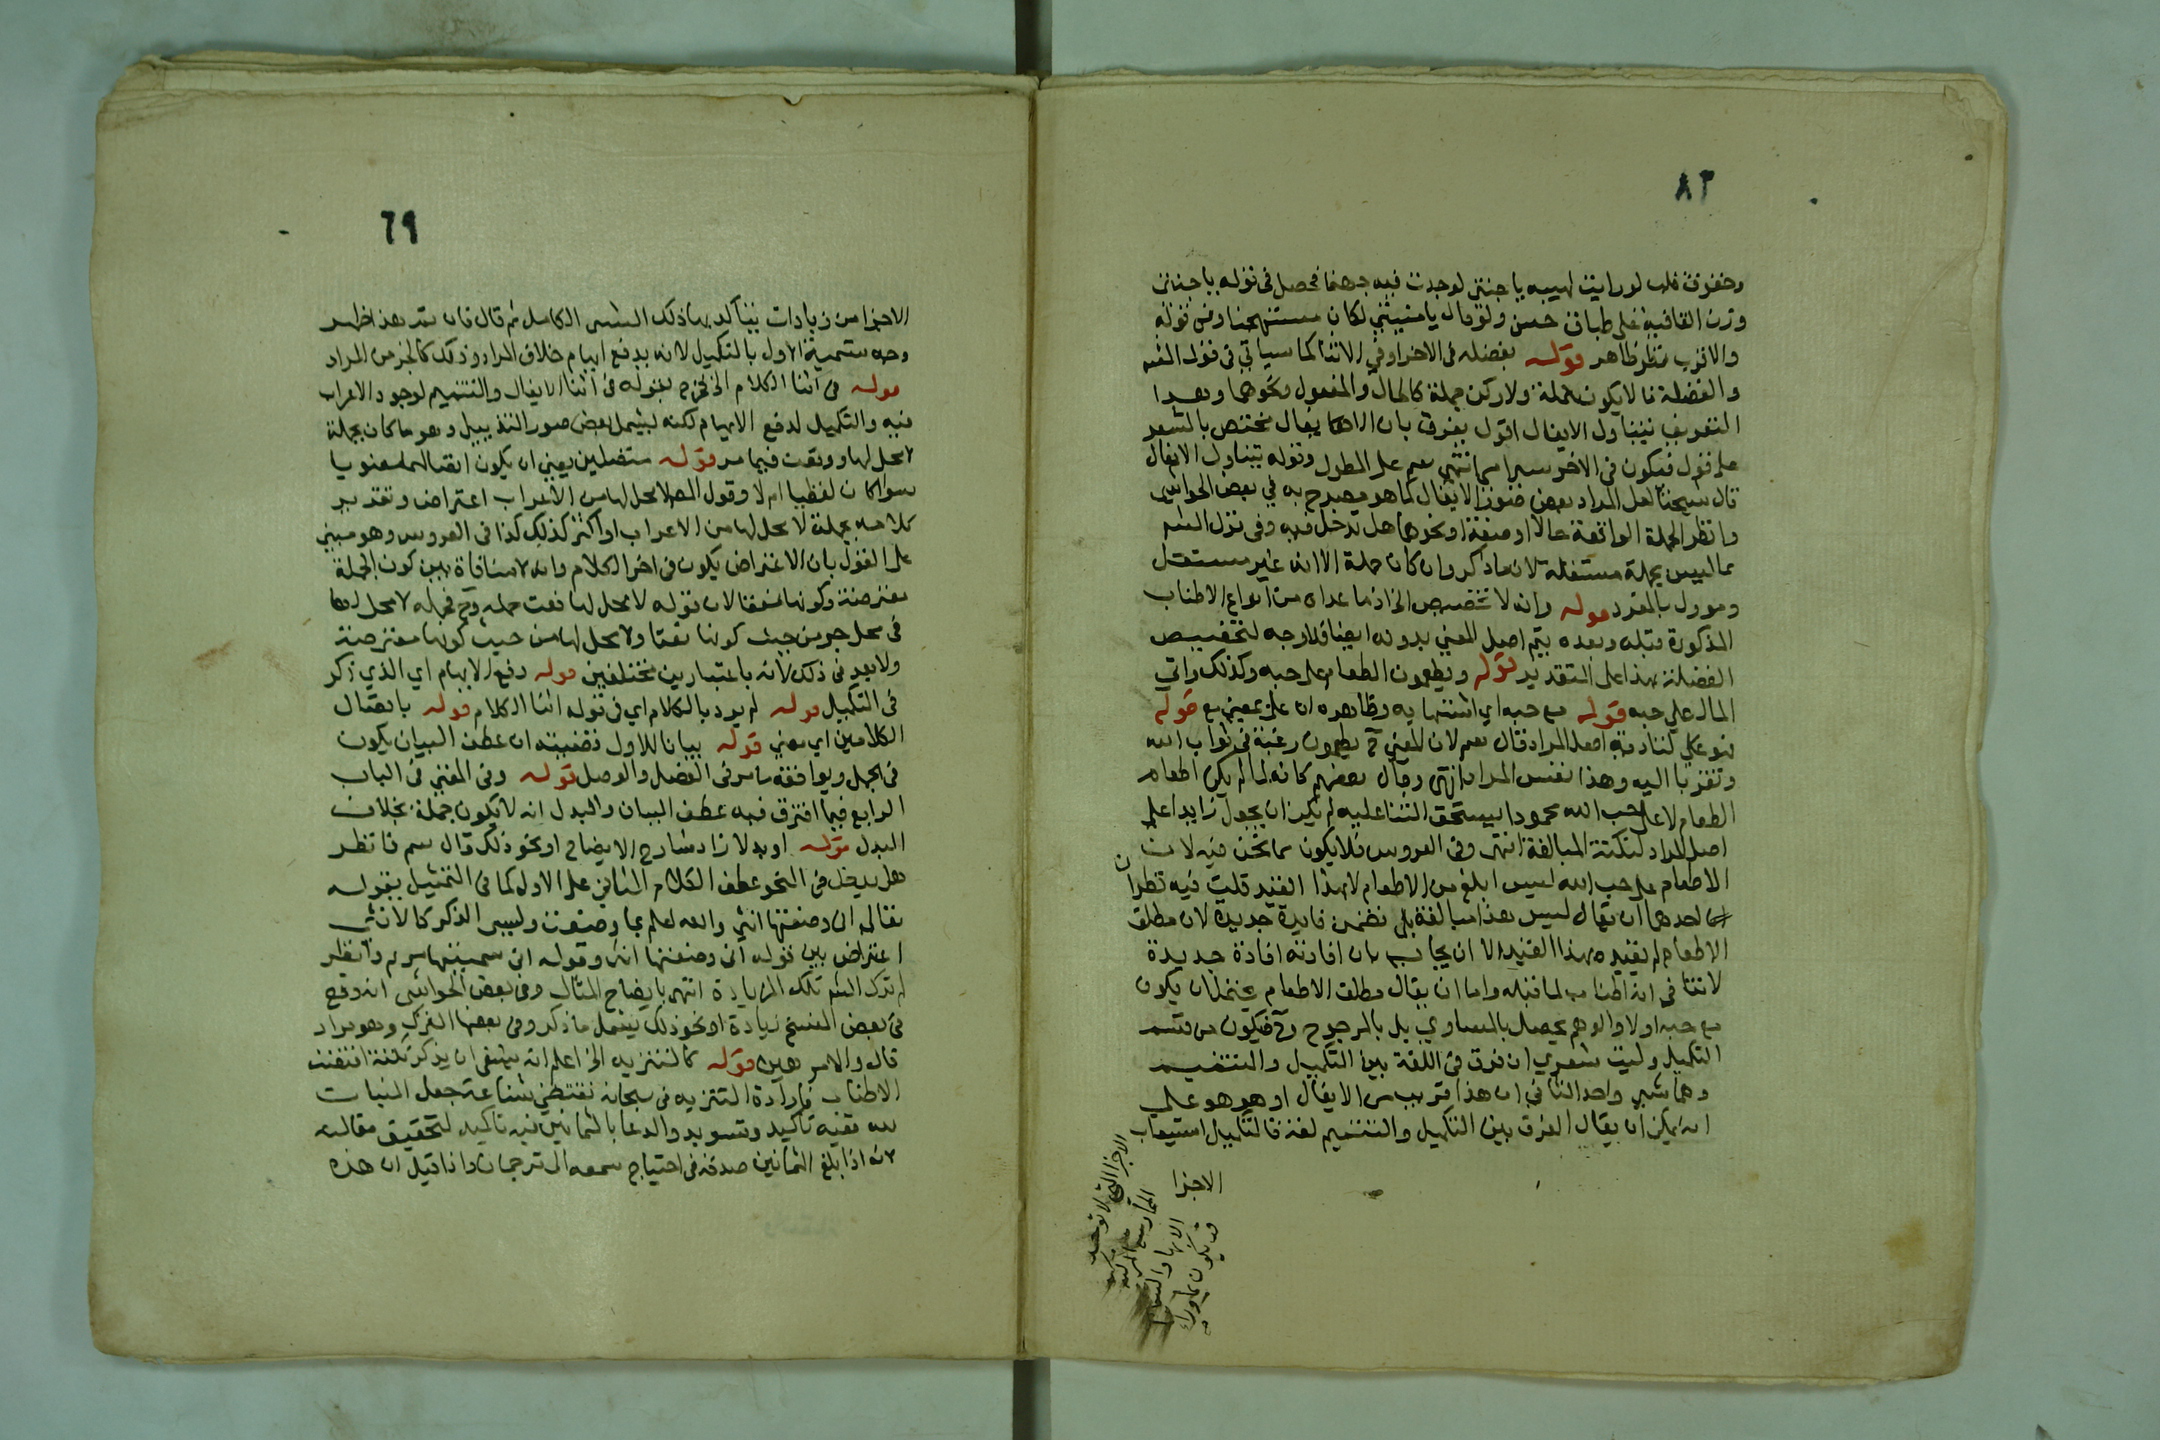 ٨٣
وخفوق قلب لو رايت لهيبه يا جنتي لوجدت فيه جهنما فحصل في قوله يا جنتي
وزن القافية على طباق حسن ولو قال يا منيتي لكان مستهجنا وفي قوله
والاقرب نظر ظاهر قوله بفضله في الاخر او في الاثنا كما سياتي في قول الش
والفضلة ما لا يكون جملة ولا ركن جملة كالحال والمفعول ونحوهما وهذا
التعريف يتناول الايغال اقول يفرق بان الايغال مختص بالشعر
على قول فيكون في الاخر سيرامي انتهى سم على المطول وقوله يتناول الايغال
قال شيخنا لعل المراد بعض صور الايغال كما هو مصرح به في بعض الحواشي
وانظر الجملة الواقعة حالا او صفة او نحوهما هل تدخل فيه وفي قول الش
مما ليس بجملة مستقلة لان ما ذكر وان كان جملة الا انه غير مستقل
وموول بالمفرد قوله وانه لا تخصيص الخ اذ ما عداه من انواع الاطناب
المذكورة قبله وبعده يتم اصل المعنى بدونه ايضا فلا وجه لتخصيص
الفضلة بهذا على التقدير قوله ويطعمون الطعام على حبه وكذلك واتي
المال على حبه قوله مع حبه اي اشتهايه وظاهره ان على بمعنى مع قوله
فهو على لتادية اصل المراد قال سم لان المعنى ح يطعمون رغبة في ثواب الله
وتقربا اليه وهذا نفس المراد انتهى وقال بعضهم كانه لما لم يكن اطعام
الطعام لا على حب الله محمودا يستحق الثنا عليه لم يكن ان يجعل زايدا على
اصل المراد لنكتة المبالغة انتهى وفي العروس فلا يكون مما نحن فيه لان
الاطعام على حب الله ليس ابلغ من الاطعام لا بهذا القيد قلت فيه نظران
احدهما ان يقال ليس هذا مبالغة بل تضمن فايدة جديدة لان مطلق
الاطعام لم يقيد بهذا القيد الا ان يجاب بان افادته افادة جديدة
لا تنافي انه اطناب لما قبله واما ان يقال مطلق الاطعام يحتمل ان يكون
مع حبه اولا والوهم يحصل بالمساوي بل بالمرجوح وح فيكون من قسم
التكميل وليت شعري ان فرق في اللغة بين التكميل والتتميم
وهما شي واحد الثاني ان هذا قريب من الايغال او هو هو على
انه يمكن ان يقال الفرق بين التكميل والتتميم لغة فالتكميل استيعاب
الاجزا
الاجزا التي لا توجد
٦٩
الاجزا من زيادات يتاكد بها ذلك الشي الكامل ثم قال فان ثبت هذا ظهر
وجه تسمية الاول بالتكميل لانه يدفع ايهام خلاف المراد وذلك كالجز من المراد
قوله في اثنا الكلام الخ خرج بقوله في اثنا الايغال والتتميم لوجود الاعراب
فيه والتكميل لدفع الايهام لكنه ليشمل بعض صور التذييل وهو ما كان بجملة
لا محل لها ووقعت فيما مر قوله متصلين يعني ان يكون اتصالهما معنويا
سوا كان لفظيا ام لا وقول المص لا محل لها من الاعراب اعتراض وتقدير
كلامه بجملة لا محل لها من الاعراب او اكثر كذلك كذا في العروس وهو مبني
على القول بان الاعتراض يكون في اخر الكلام وانه لا منافاة بين كون الجملة
معترضة وكونها نعتا لان قوله لا محل لها نعت جملة وح فجملة لا محل لها
في محل جر من حيث كونها نعتا ولا محل لها من حيث كونها معترضة
ولا بعد في ذلك لانه باعتبارين مختلفين قوله دفع الايهام اي الذي ذكر
في التكميل قوله لم يرد بالكلام اي في قوله اثنا الكلام قوله باتصال
الكلامين اي معنى قوله بيانا للاول قضيته ان عطف البيان يكون
في الجمل ويوافقه ما مر في الفصل والوصل قوله وفي المغني في الباب
الرابع فيما افترق فيه عطف البيان والبدل انه لا يكون جملة بخلاف
البدل قوله او بدلا زاد شارح الايضاح او نحو ذلك قال سم فانظر
هل يدخل في النحو عطف الكلام الثاني على الاول كما في التمثيل بقوله
تعالى اني وضعتها انثى والله اعلم بما وضعت وليس الذكر كالانثى
اعتراض بين قوله اني وضعتها انثى وقوله اني سميتها مريم وانظر
لم ترك الش تلك الزيادة انتهى بايضاح المثال وفي بعض الحواشي انه وقع
في بعض النسخ زيادة او نحو ذلك يشمل ما ذكر وفي بعضها الترك وهو مراد
قال والامر هين قوله كالتنزيه الخ اعلم انه ينبغي ان يذكر نكتة اقتضت
الاطناب فارادة التنزيه في سبحانه تقتضي شناعة جعل البنات
لله ففيه تاكيد وتسويد والدعا بالثمانين فيه تاكيد لتحقيق مقالته
لانه اذا بلغ الثمانين صدقه في احتياج سمعه الى ترجمان واذا قيل ان هذه